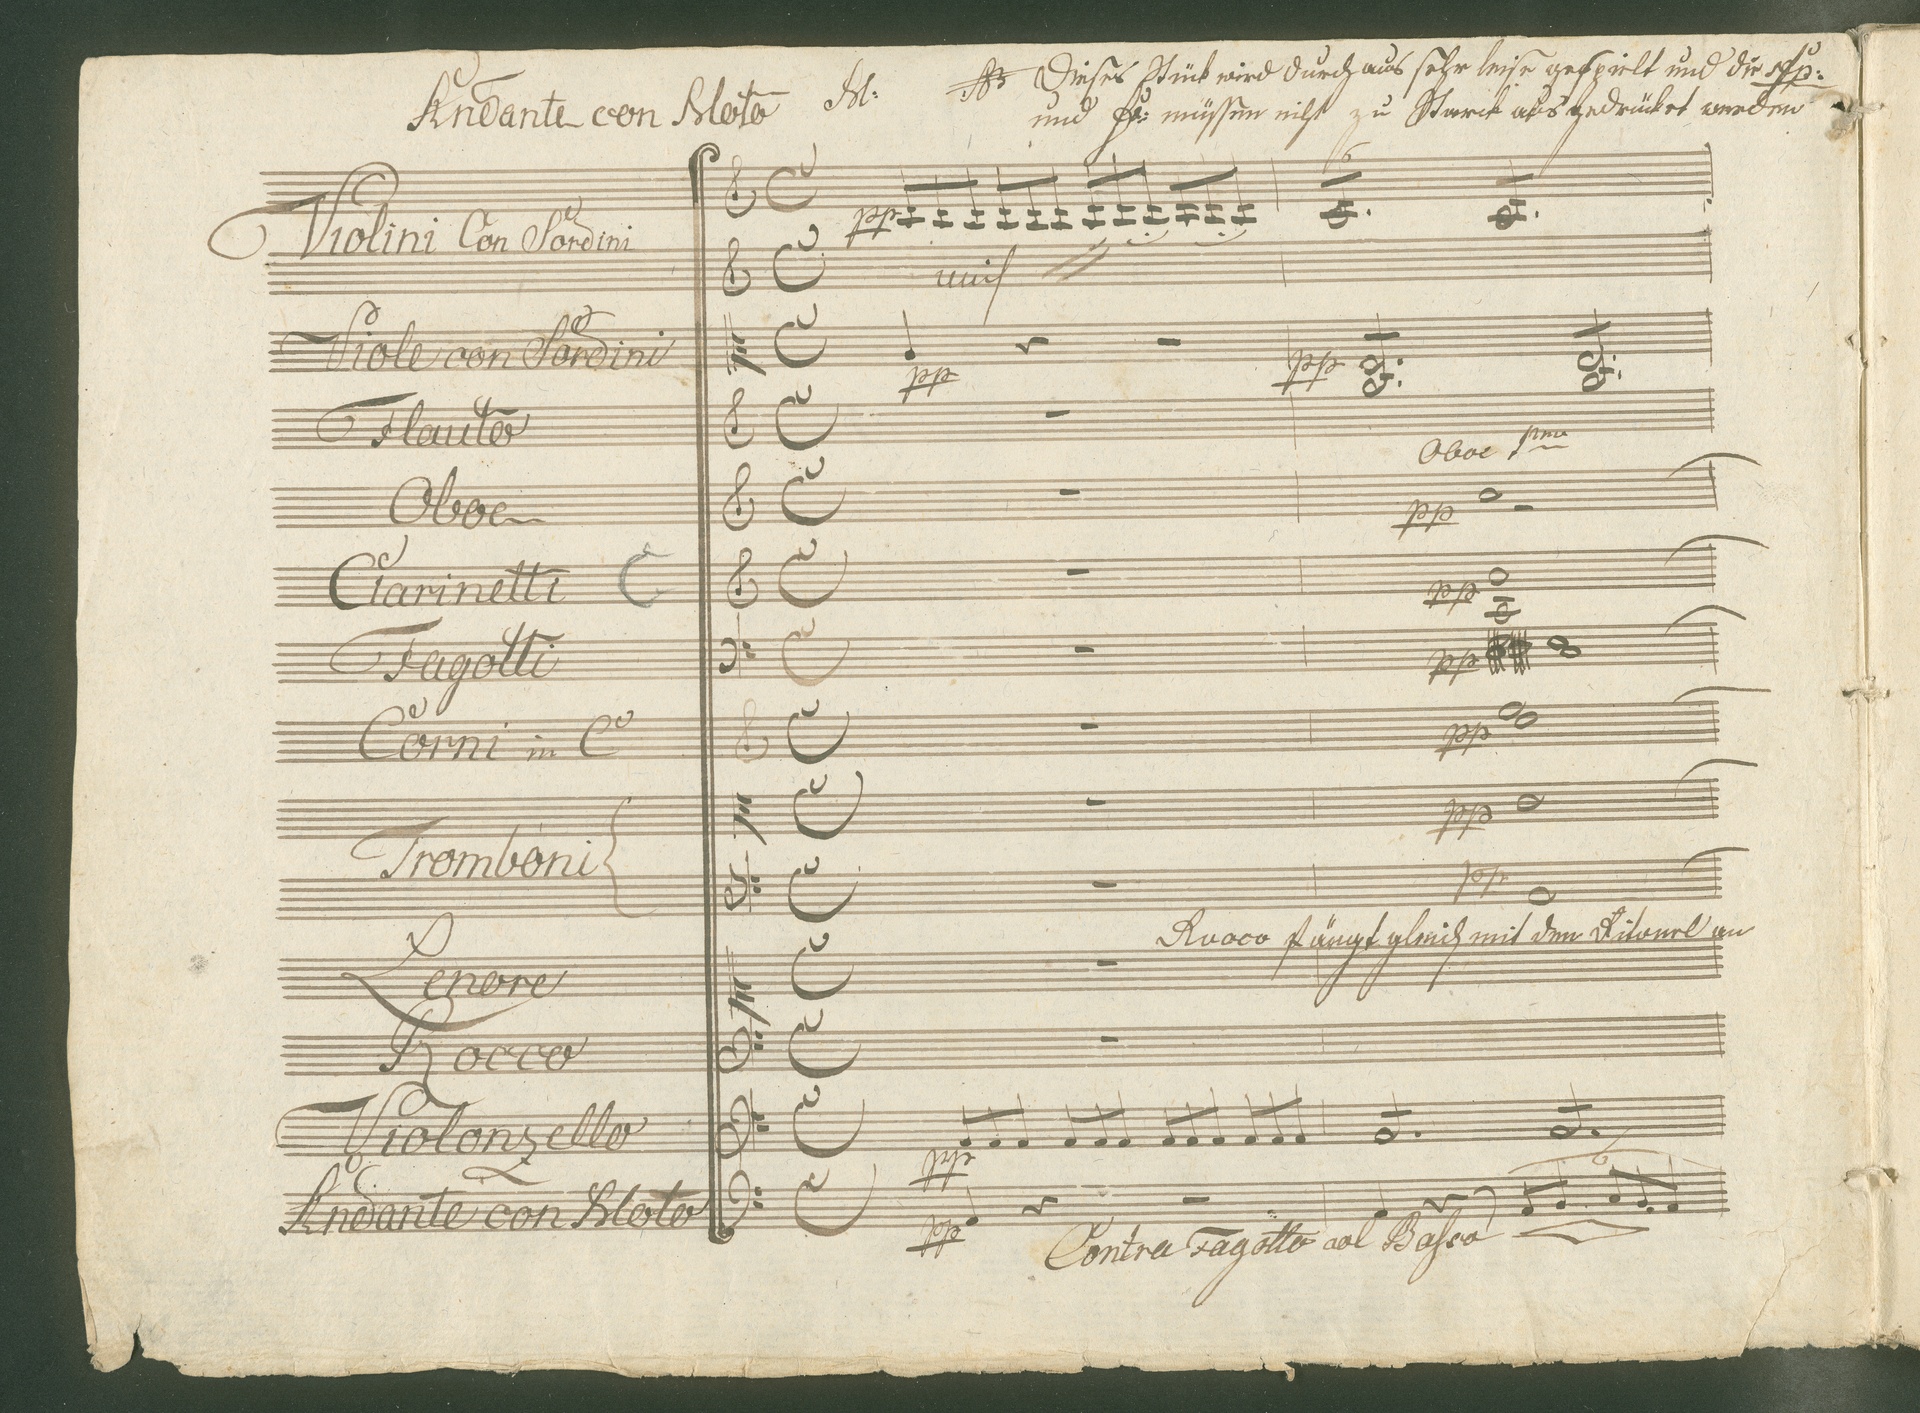 Andante con Moto M: NB Dieses Stück wird durchaus sehr leise gespielt und die sfp:
und fp: müssen nicht zu Stark ausgedrücket werden
Violini Con Sordini
pp
unis
Viole con Sordini
pp pp
Flauto
Oboe pmo
Oboe
pp
Clarinetti C
pp
Fagotti
pp
Corni in C
pp
pp
Tromboni
pp
Rocco fängt gleich mit den Ritonel an
Lenore
Rocco
Violonzello
pp
Andante con Moto
pp
Contra Fagotto col Basso